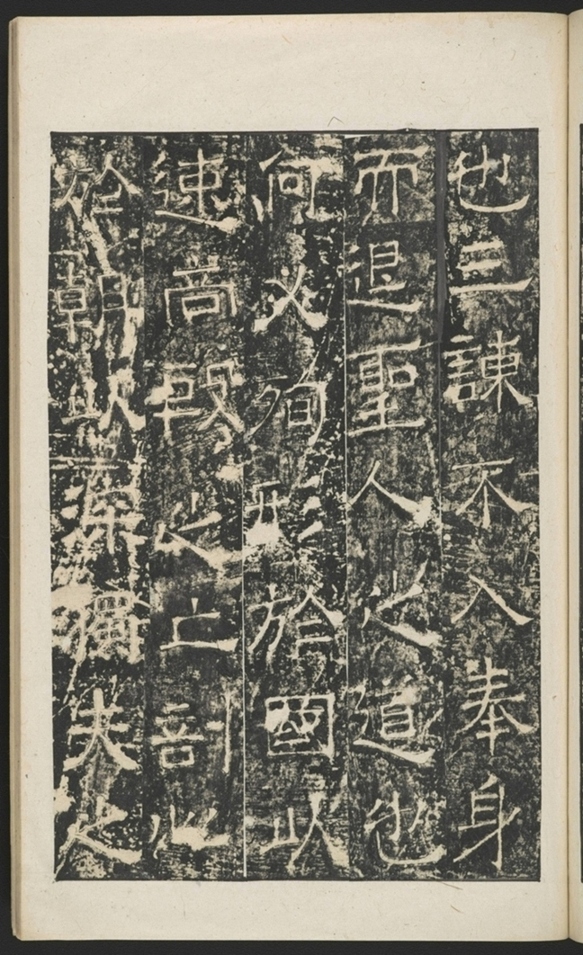 也三諫不入奉身
而退聖人之道也
何必殉形於國以
速商殷之亡剖心
於朝以深獨夫之